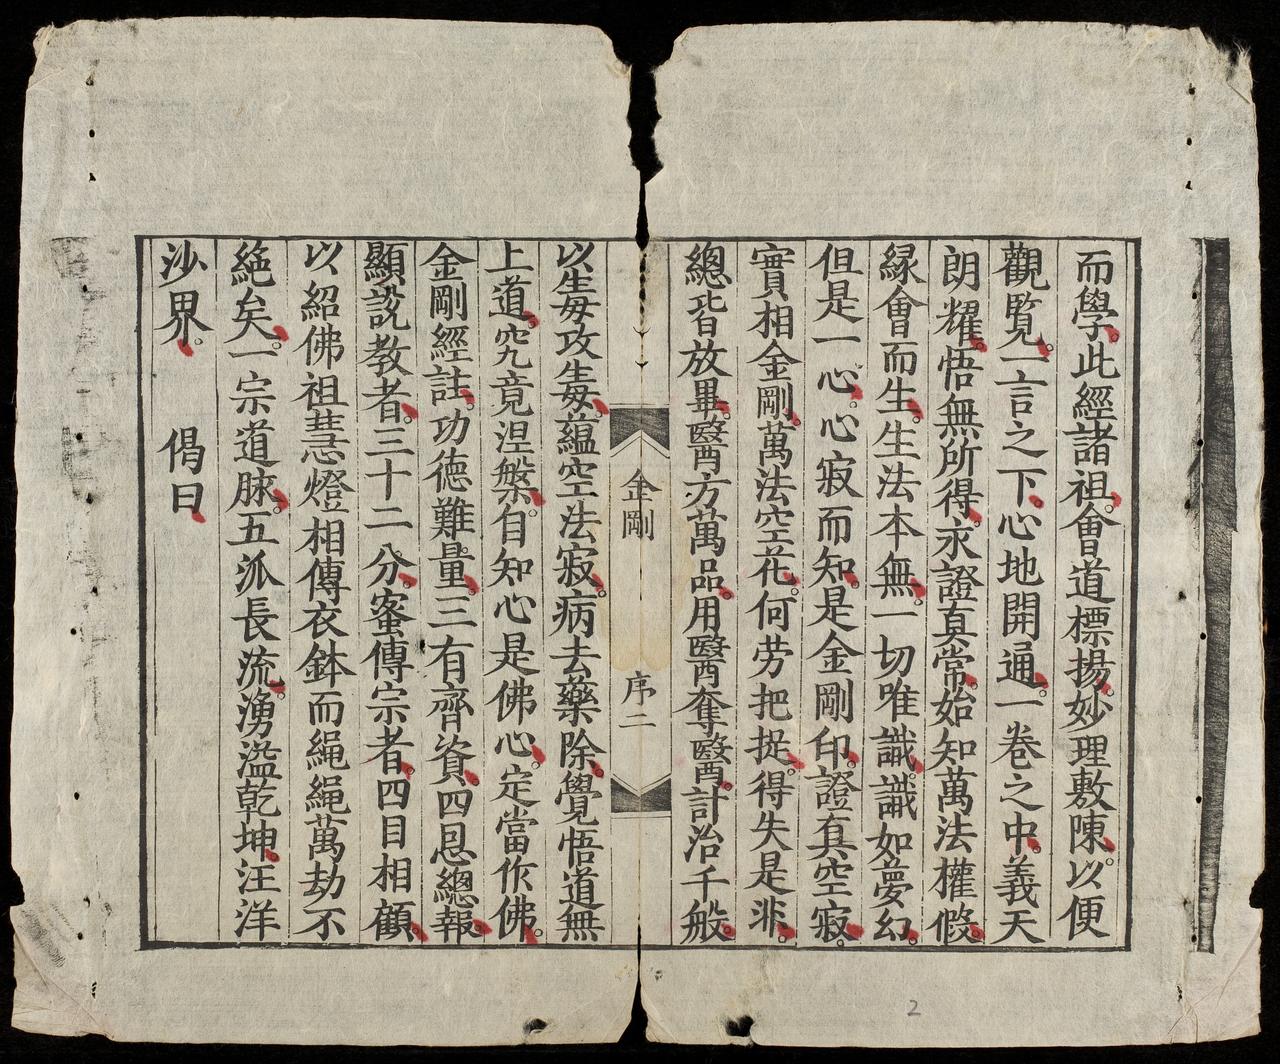 而學。此經諸祖。會道標揚。妙理敷陳。以便
觀覽。一言之下。心地開通。一卷之中。義天
朗耀。悟無所得。永證真常。始知萬法權假。
緣會而生。生法本無。一切唯識。識如夢幻。
但是一心。心寂而知。是金剛印。證真空寂。
實相金剛。萬法空花。何劳把捉。得失是非。
總皆放畢。醫方萬品。用醫奪醫。計治千般。
金剛 序二
以生毎攻生毎。蘊空法寂。病去藥除。覺悟道無
上道。究竟涅槃。自知心是佛心。定當作佛。
金剛經註。功德難量。三有齊資。四恩總報。
顯說教者。三十二分。蜜傳宗者。四目相顧。
以紹佛祖慧燈相傳衣鉢而繩繩萬劫不
絕矣。一宗道脉。五派長流。湧溢乾坤。汪洋
沙界。 偈曰
2